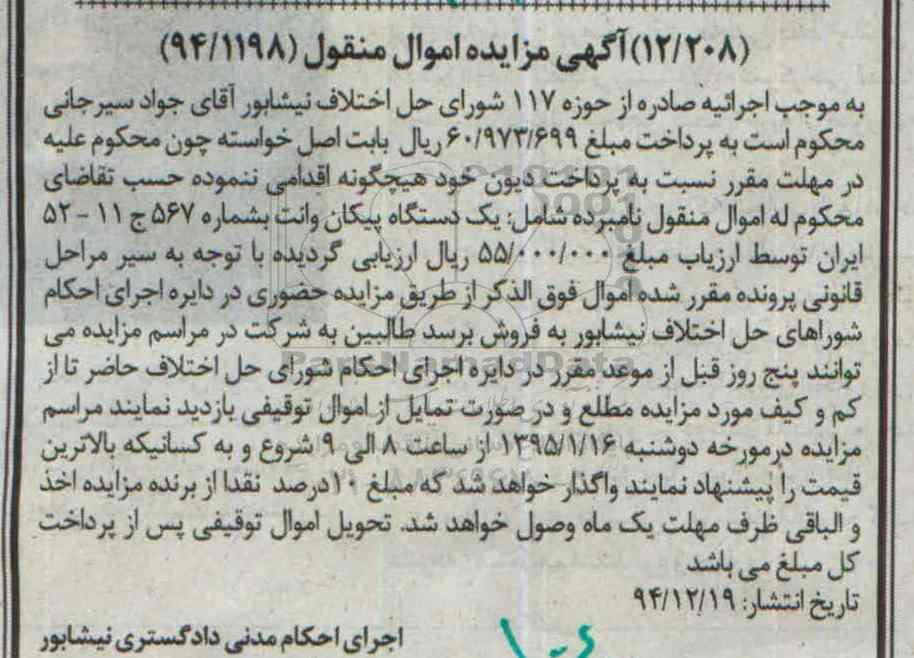 (۱۲/۲۰۸) آگهی مزایده اموال منقول (۹۴/۱۱۹۸)
به موجب اجرائیه صادره از حوزه ۱۱۷ شورای حل اختلاف نیشابور آقای جواد سیرجانی
محکوم است به پرداخت مبلغ ۶۰/۹۷۳/۶۹۹ ریال بابت اصل خواسته چون محکوم علیه
در مهلت مقرر نسبت به پرداخت دیون خود هیچگونه اقدامی ننموده حسب تقاضای
محکوم له اموال منقول نامبرده شامل: یک دستگاه پیکان وانت بشماره ۵۶۷ ج ۱۱ - ۵۲
ایران توسط ارزیاب مبلغ ۵۵/۰۰۰/۰۰۰ ریال ارزیابی گردیده با توجه به سیر مراحل
قانونی پرونده مقرر شده اموال فوق الذکر از طریق مزایده حضوری در دایره اجرای احکام
شوراهای حل اختلاف نیشابور به فروش برسد طالبین به شرکت در مراسم مزایده می
توانند پنج روز قبل از موعد مقرر در دایره اجرای احکام شورای حل اختلاف حاضر تا از
کم و کیف مورد مزایده مطلع و در صورت تمایل از اموال توقیفی بازدید نمایند مراسم
مزایده درمورخه دوشنبه ۱۳۹۵/۱/۱۶ از ساعت ۸ الی ۹ شروع و به کسانیکه بالاترین
قیمت را پیشنهاد نمایند واگذار خواهد شد که مبلغ ۱۰درصد نقدا از برنده مزایده اخذ
و الباقی ظرف مهلت یک ماه وصول خواهد شد. تحویل اموال توقیفی پس از پرداخت
کل مبلغ می باشد
تاریخ انتشار: ۹۴/۱۲/۱۹
اجرای احکام مدنی دادگستری نیشابور
ParsNamadData